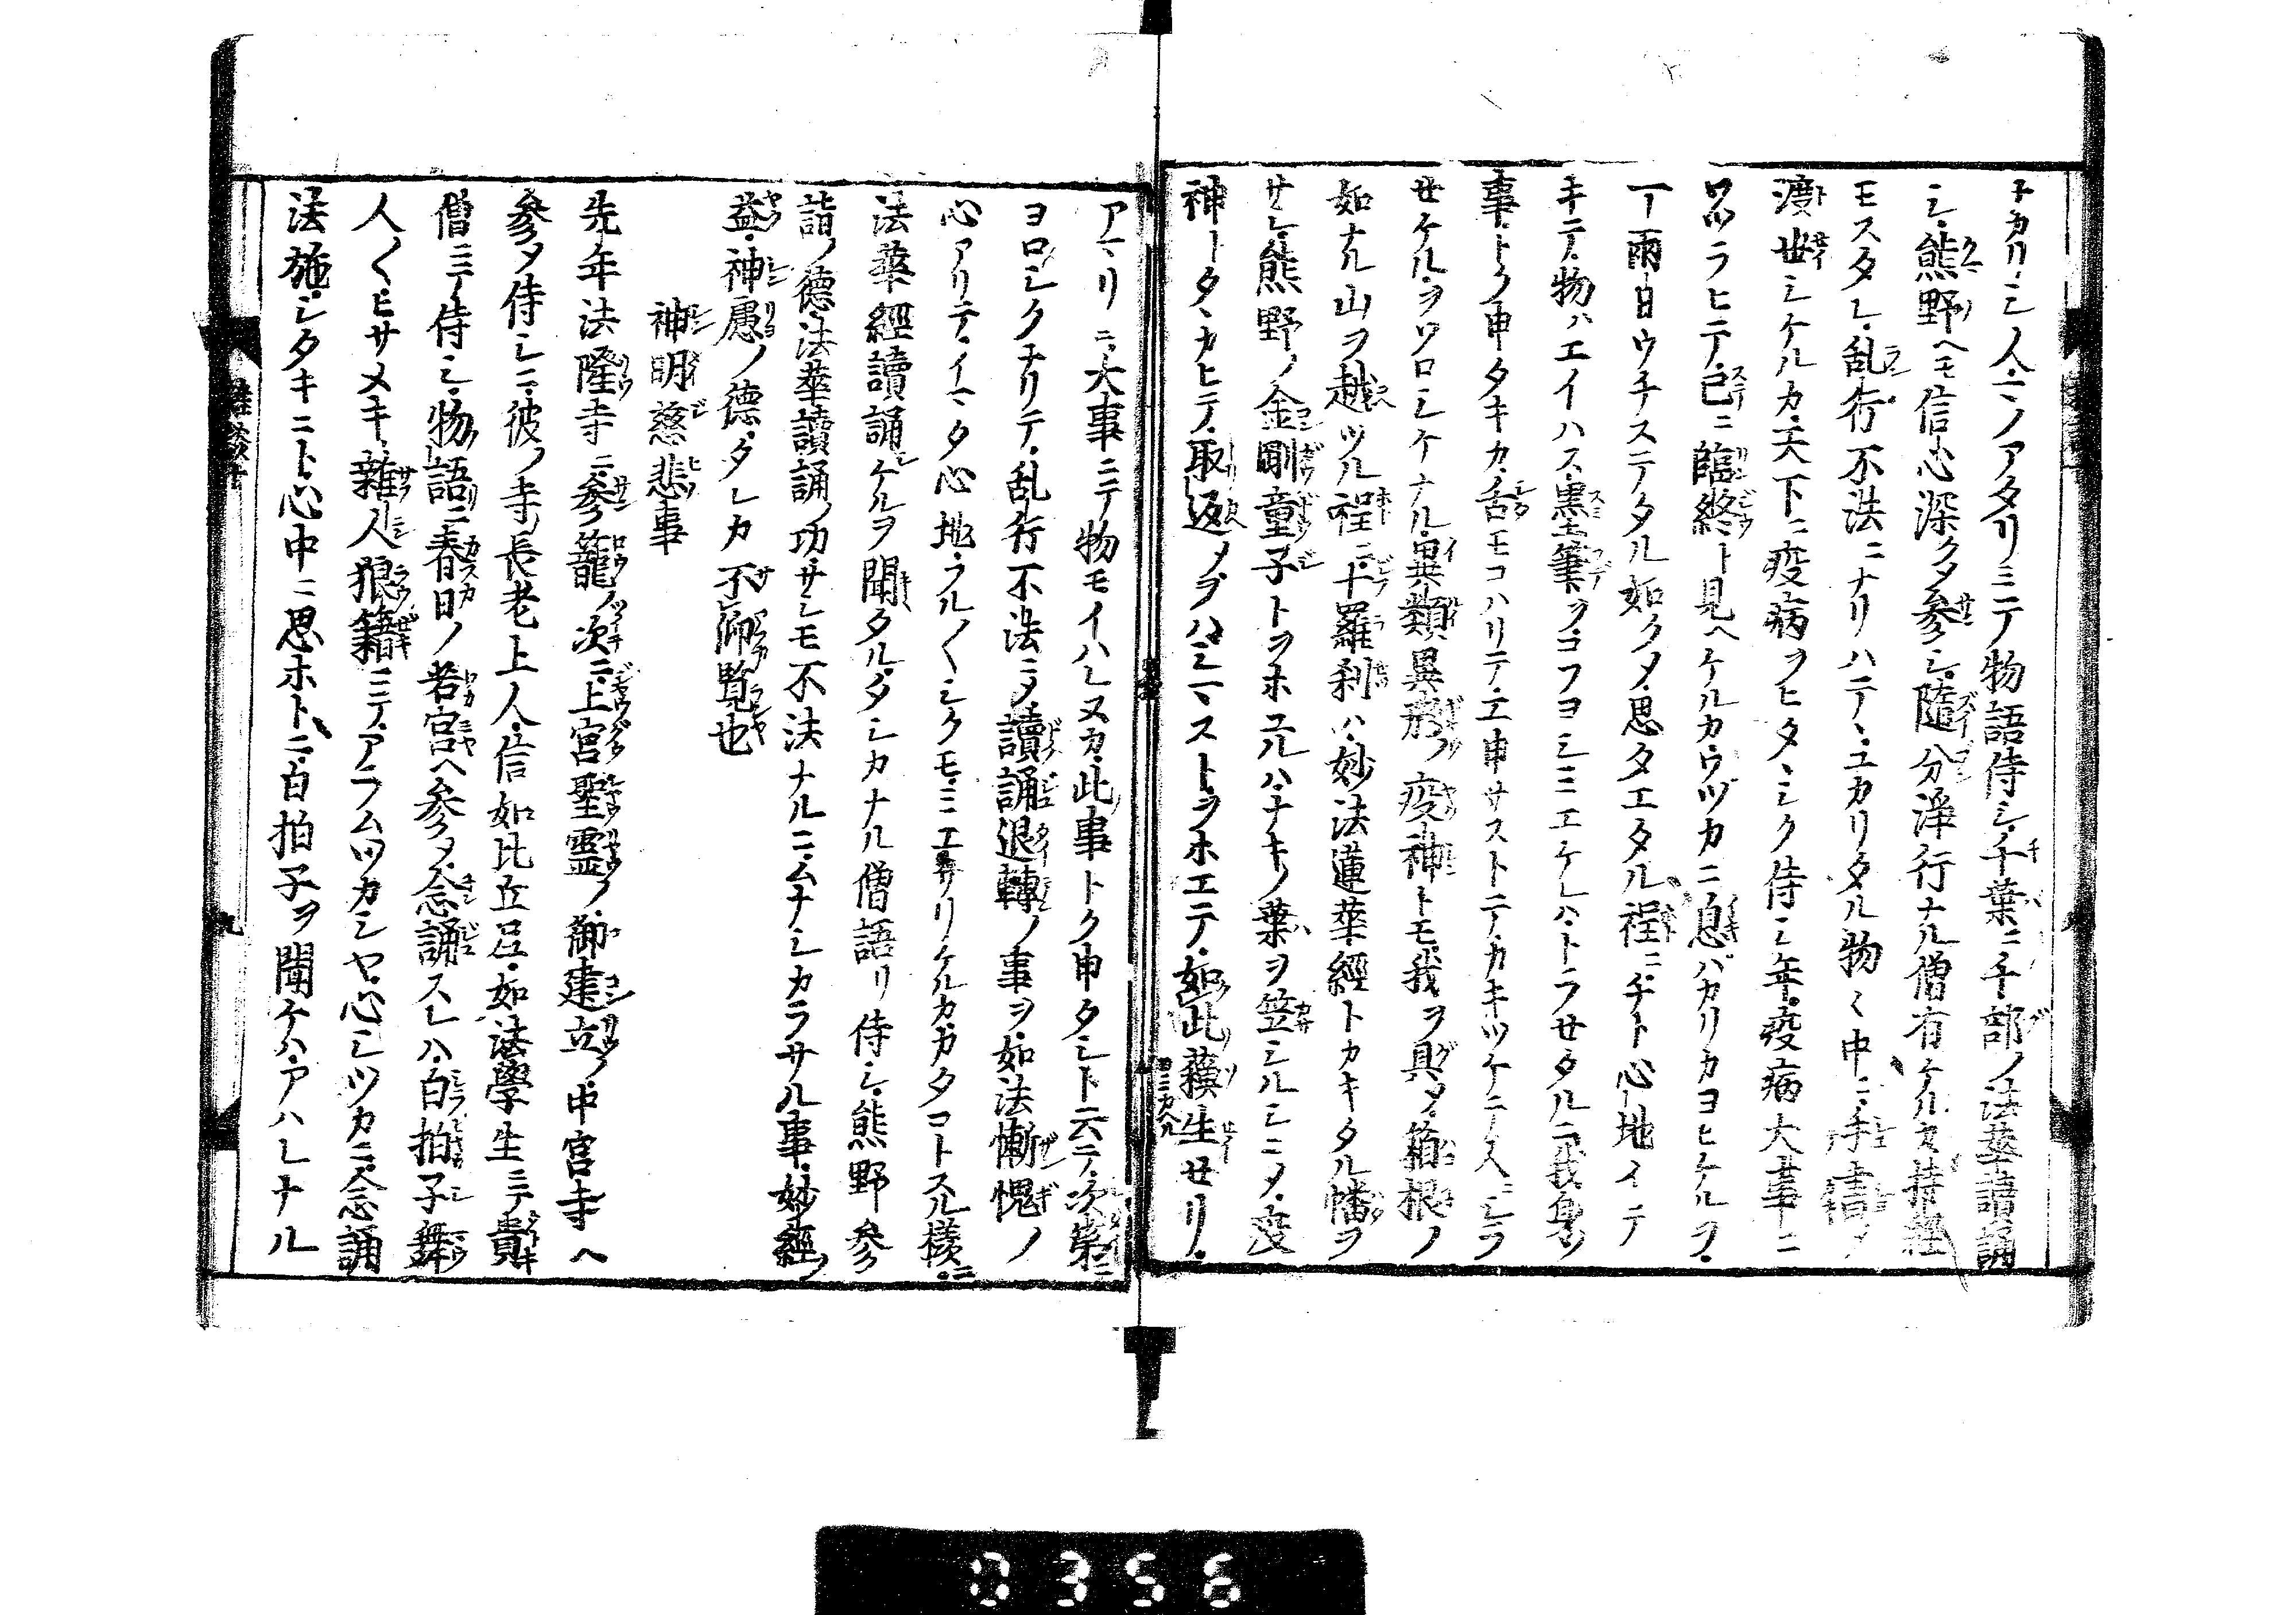 チカリシ人マノアタリニテ物語侍シ千葉ニ千部ノ法華讀誦
シ熊野ヘモ信心深クメ参シ隨分淨行ナル僧有ケルカ持經
モスタレ乱行不法ニナリハテヽユカリタル物ヽ中ニ手書メ
渡世シケルカ天下ニ疫病ヲヒタヽシク侍シ年疫病大事ニ
ワツラヒテ已ニ臨終ト見ヘケルカウヅカニ息バカリカヨヒケルヲ
一日雨ウチステタル如クメ思タエタル程ニチト心地イテ
キテ物ハエイハス墨筆ヲコフヨシミエケレハトラセタルニ我身ノ
事トク申タキカ舌モコハリテエ申サストテカキツケテ久シラ
サケルヲソロシケナル異類異形ノ疫神トモ我ヲ具メ箱根ノ
如ナル山ヲ越ツル程ニ十羅刹ハ妙法蓮華經トカキタル幡ヲ
サシ熊野ノ金剛童子トヲホユルハナキノ葉ヲ笠シルシニメ疫
神トタヽカヒテ取返メヲハシマストヲホエテ如此穌生セリ
アマリニ大事ニテ物モイハレヌカ此事トク申タシト云テ次第ニ
ヨロシクナリテ乱行不法ニメ讀誦退轉ノ事ヲ如法慚愧ノ
心アリテイマタ心地フルノ〱シクモミエサリケルカカタコトスル様ニ
法華經讀誦シケルヲ聞タルタシカナル僧語リ侍シ熊野参
詣ノ德法華讀誦ノ功サシモ不法ナルニムナシカラサル事妙經ノ
益神慮ノ德タレカ不仰覧也
神明慈悲事
先年法隆寺ニ参籠ノ次ニ上宮聖霊ノ御建立ノ中宮寺ヘ
参タ侍シニ彼ノ寺ノ長老上人信如比丘尼如法學生ニテ貴キ
僧ニテ侍シ物語ニ春日ノ若宮ヘ参タ念誦スレハ白拍子舞
人〱ヒサメキ雜人狼籍ニテアラムツカシヤ心シツカニ念誦
法施シタキニト心中ニ思ホトニ白拍子ヲ聞ケハアハレナル
雜談十
九
0356